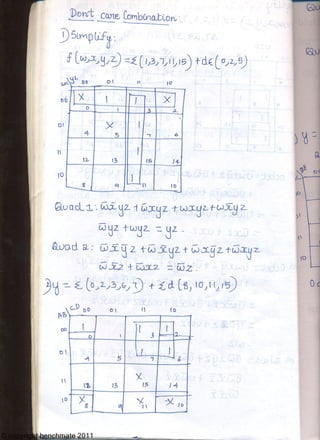 Don't care Combination.
1) Simplify:
f(w,x,y,z) = Σ(1,3,7,11,15) + dΣ(0,2,5)
wx yz 00 01 11 10
00 X 1 1 X
0 1 3 2
01 X 1
4 5 7 6
11 1
12 13 15 14
10 1
8 9 11 10
Quad 1: w̄x̄yz + w̄xyz + wxyz + wx̄yz
w̄yz + wyz = yz.
Quad 2: w̄x̄ȳz + w̄x̄yz + w̄xȳz + w̄xyz
w̄x̄z + w̄xz = w̄z
2) y = Σ(0,2,3,6,7) + Σd(8,10,11,15)
AB CD 00 01 11 10
00 1 1 1
0 1 3 2
01 1 1
4 5 7 6
11 X
12 13 15 14
10 X X X
8 9 11 10
benchmate 2011